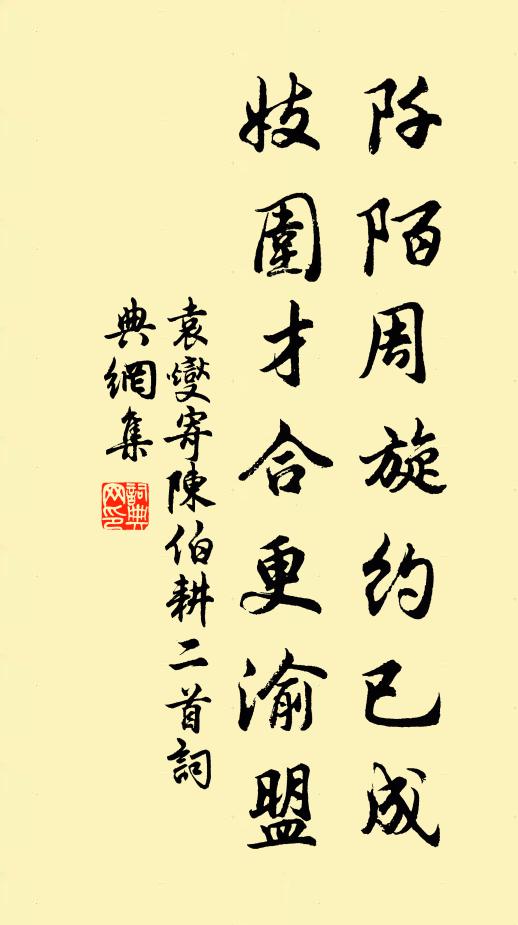 阡陌周旋約已成
妓圍才合更渝盟
袁燮寄陳伯耕二首詞
典網集
詞典
网印